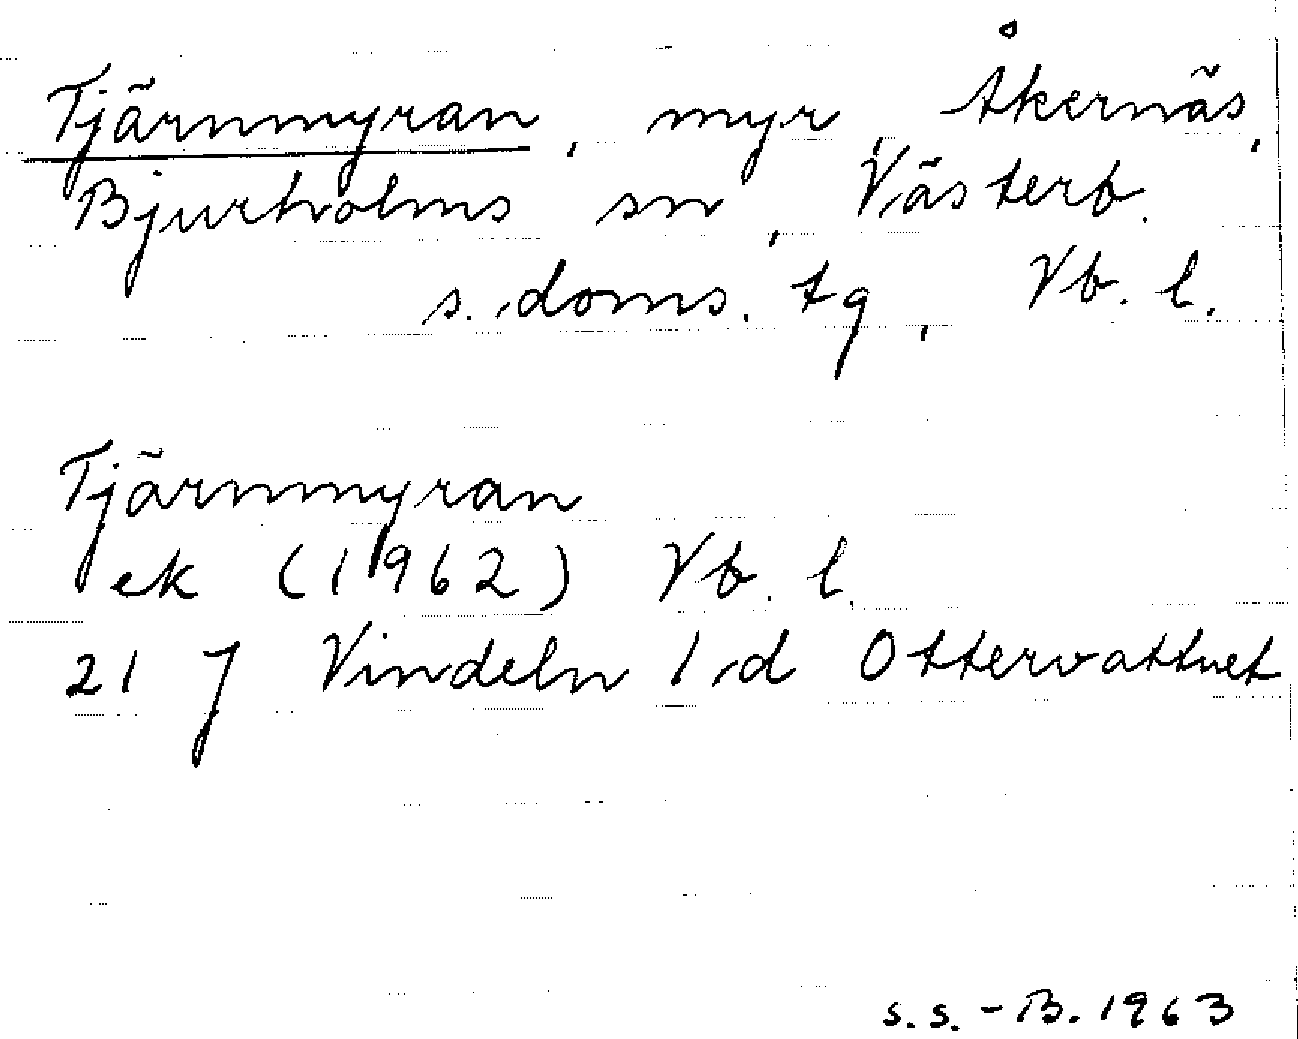 Tjärnmyran, myr, Åkernäs,
Bjurholms sn, Västerb.
s. doms. tg, Vb. l.
Tjärnmyran
ek (1962) Vb. l.
21 J Vindeln 1 d Ottervattnet
s.s.-B. 1963